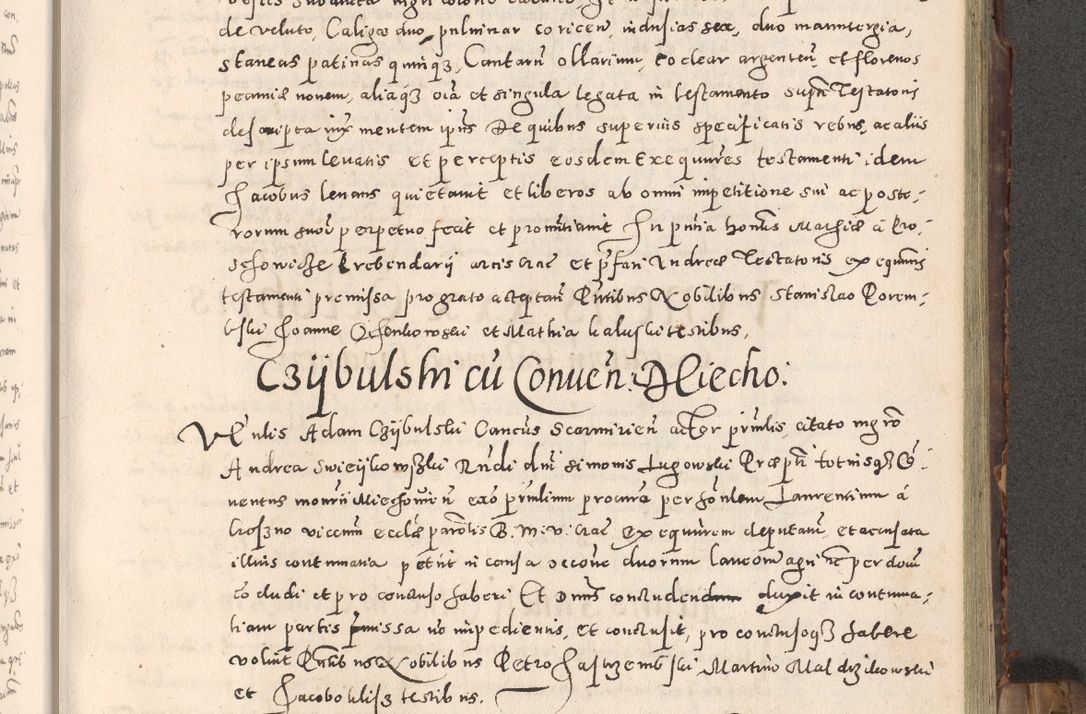 de veluto, Caligas duo, pulvinar co ricen, indusias sex, duo manutergia,
staneas patinas quinq3, Cantarũ ollarium, coclear argenteũ, et florenos
pecuniæ novem, aliaq3 oĩa et singula legata in testamento supra Testatoris
descripta iux mentem ipius De quibus superius specificatis rebus, ac aliis
per ipsum levatis et perceptis eosdem Exequutores testamenti idem
Jacobus levans quietavit et liberos ab omni impetitione sui ac poste-
rorum suorũ perpetuo fecit et pronuntiavit In pñtia honestis Mathiæ à Pro-
szowicze Prebendarij arcis Crac et præfati Andreæ Testatoris exequutoris
testamenti premissa pro grato acceptan Pñtibus Nobilibus Stanislao Porem-
bski Joanne Ochenkowski et Mathia Kaluski testibus.
Czijbulski cũ Conven: Miecho:
Vĕnlis Adam Czijbulski Cancus Scarmirieñ actor prinlis, citato mgrõ
Andrea Swieijkowszki Rndi dni Simonis Lugowski Præpti totiusq3 Cõ-
ventus monrii Miechoviuñ exõ prinlium procure per honlem Laurentium à
Crosno vicerum ecclæ parotlis B. M. V. Crac Exequutorem deputatũ, et accusata
illius contumatia petiit in causa oecone duorum laneorum agri nc per dom
co dudi et pro concluso haberi Et Dnus concludendam duxit in contuma-
tiam partis præmissa no impedientis, et conclusit, pro conclusoq3 habere
voluit Pñtibus Nobilibus Petro Jastrzembski Martino Maldrzikowski
et Jacobo Ulisz testibus.